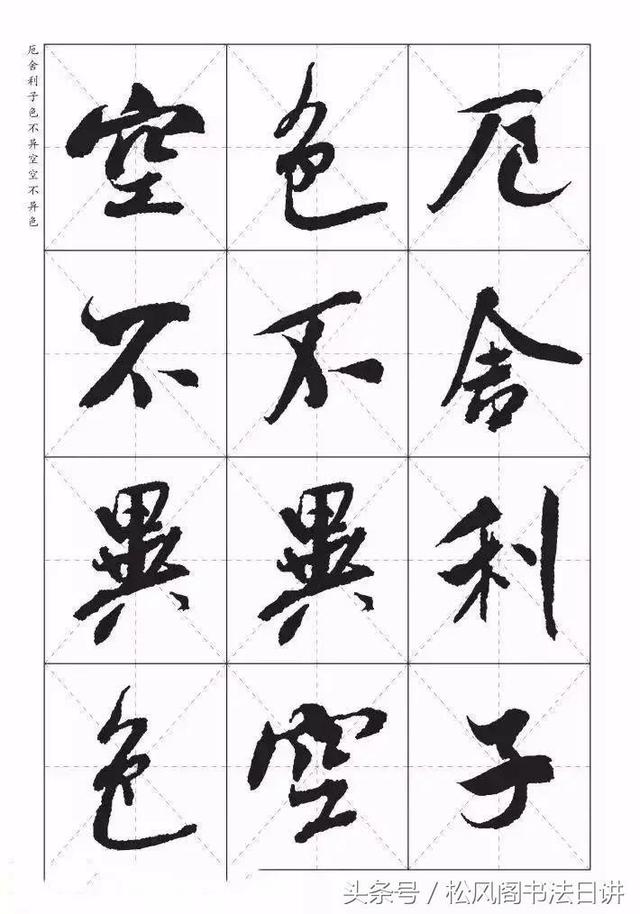 厄舍利子色不异空空不异色
厄舍利子
色不異空
空不異色
头条号／松风阁书法日讲